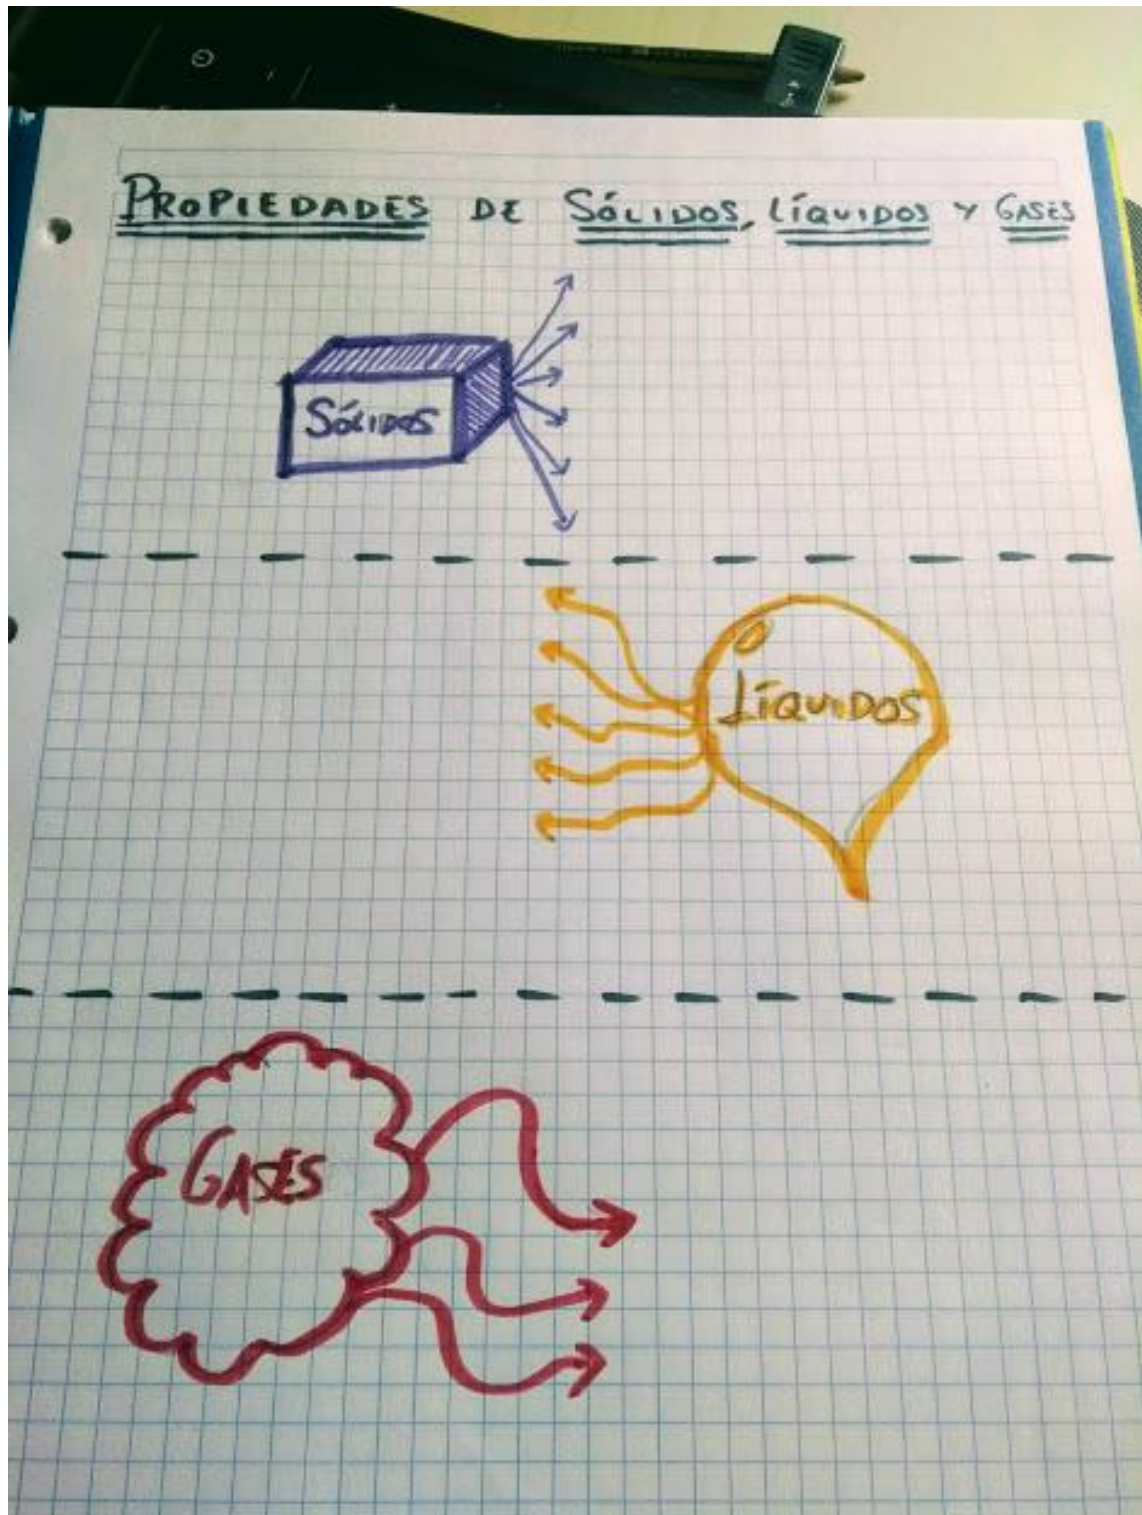 PROPIEDADES DE SÓLIDOS, LÍQUIDOS Y GASES
SÓLIDOS
LÍQUIDOS
GASES